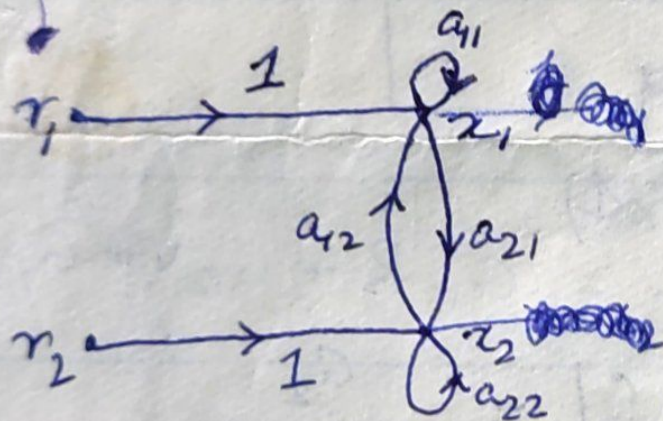 a₁₁
r₁ 1 x₁
a₁₂ a₂₁
r₂ 1 x₂
a₂₂